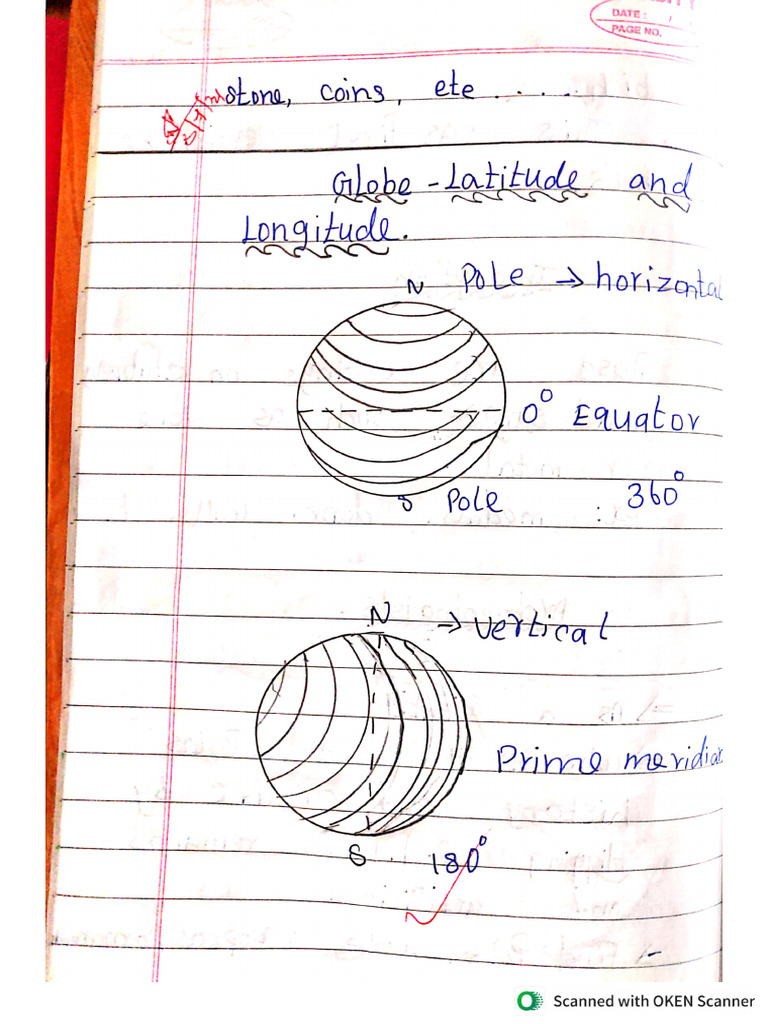 DATE: / /
PAGE NO.
stone, coins, ete ....
Globe - Latitude and
Longitude.
N Pole → horizontal
0° Equator
S Pole : 360°
N → vertical
Prime meridia
S 180°
Scanned with OKEN Scanner